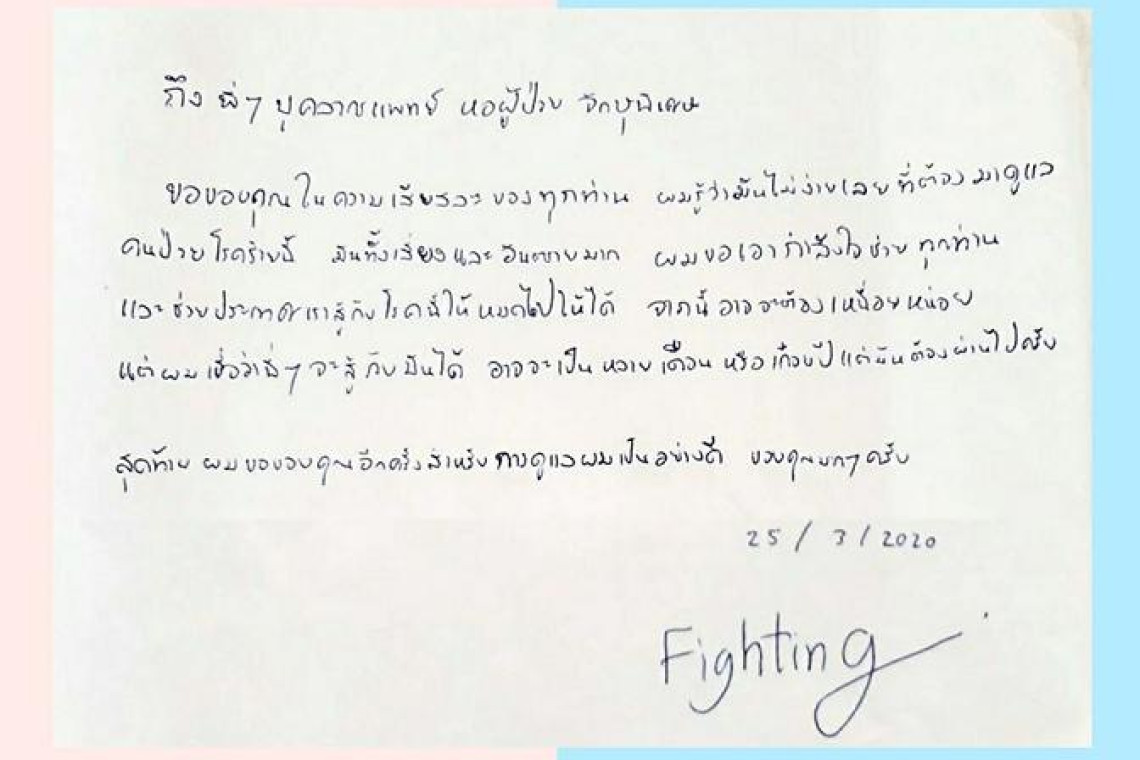 ถึง พี่ๆ บุคลากรแพทย์ หอผู้ป่วย จักษุพิเศษ
ขอขอบคุณในความเสียสละของทุกท่าน ผมรู้ว่ามันไม่ง่ายเลย ที่ต้องมาดูแล
คนป่วยโรคร้ายนี้ มันทั้งเสี่ยงและอันตรายมาก ผมขอเอากำลังใจช่วยทุกท่าน
และช่วยประเทศเราสู้กับโรคนี้ให้หมดไปให้ได้ จากนี้อาจจะต้องเหนื่อยหน่อย
แต่ผมเชื่อว่าพี่ๆ จะสู้กับมันได้ อาจจะเป็นหลายเดือนหรือเกือบปีแต่มันต้องผ่านไปครับ
สุดท้าย ผมขอขอบคุณอีกครั้งสำหรับการดูแลผมเป็นอย่างดี ขอบคุณมากๆครับ
25 / 3 / 2020
Fighting